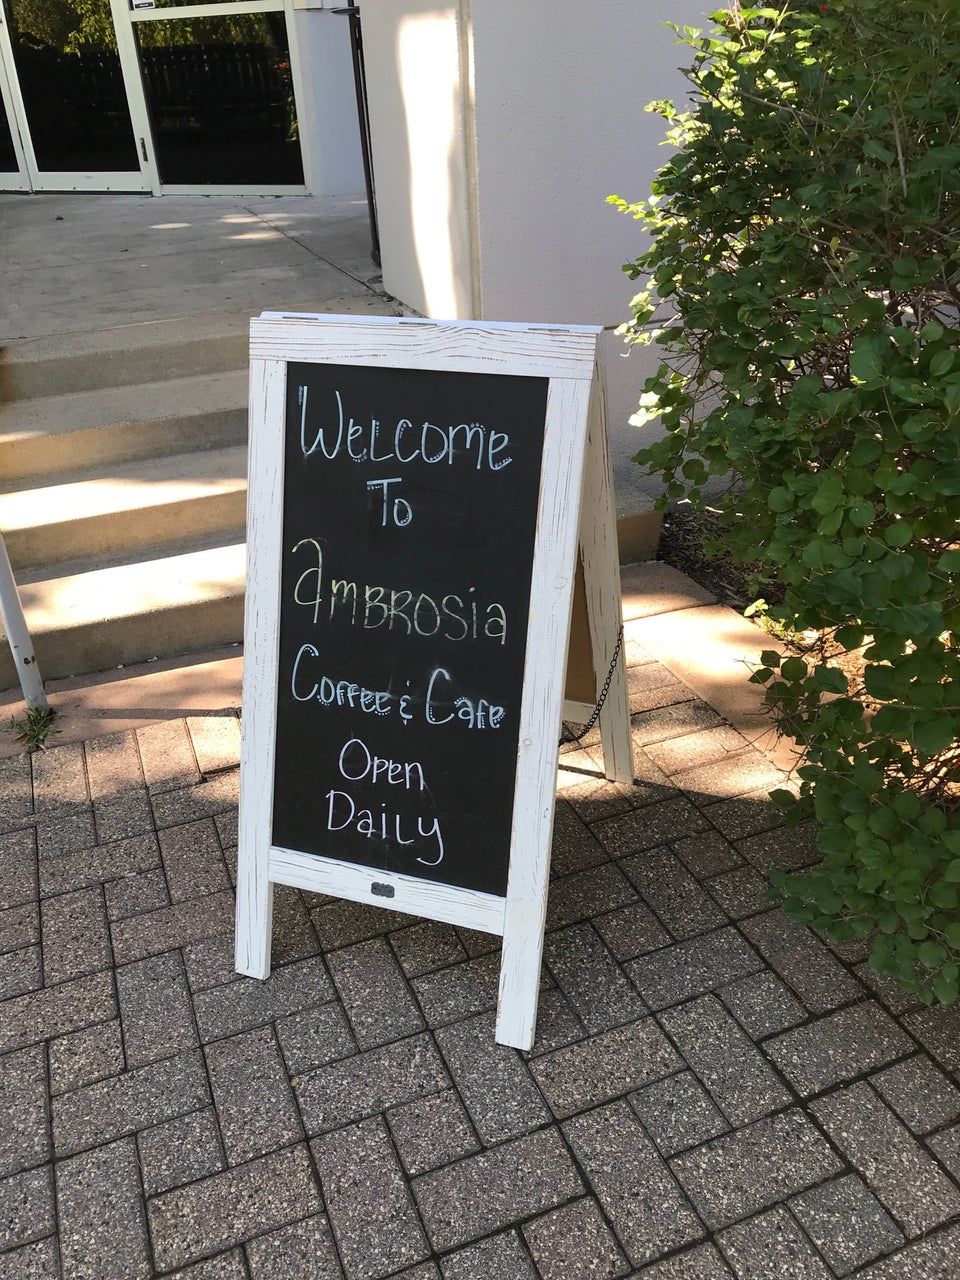 Welcome
To
Ambrosia
Coffee & Cafe
Open
Daily